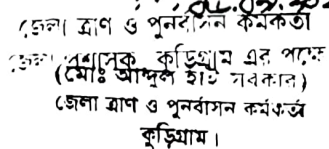 জেলা ত্রাণ ও পুনর্বাসন কর্মকর্তা
জেলা প্রশাসক কুড়িগ্রাম এর পক্ষে
(মোঃ আব্দুল হাই সরকার)
জেলা ত্রাণ ও পুনর্বাসন কর্মকর্তা
কুড়িগ্রাম।